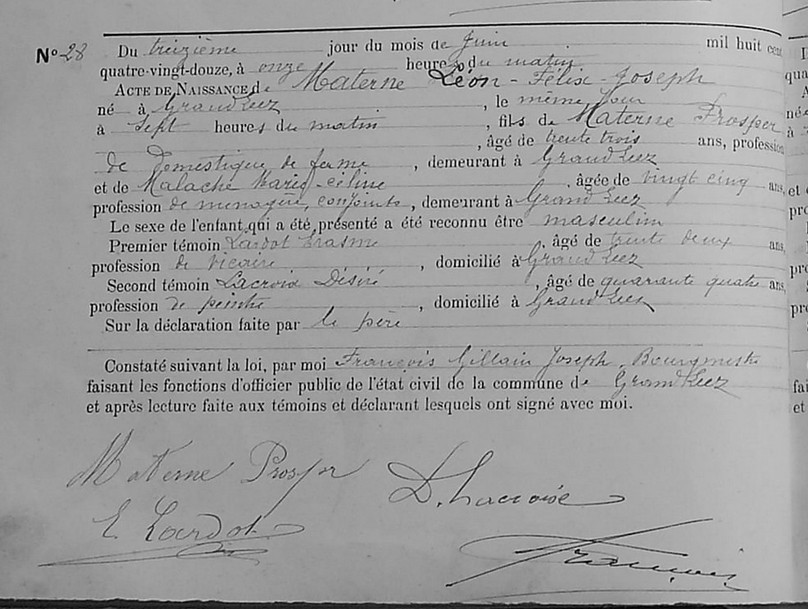 N° 28
Du treizième jour du mois de Juin mil huit cent
quatre-vingt-douze, à onze heures du matin
ACTE DE NAISSANCE de Materne Léon - Félix - Joseph
né à Grand Leez, le même jour
à sept heures du matin, fils de Materne Prosper
, âgé de trente trois ans, profession
de Domestique de ferme, demeurant à Grand Leez
et de Malache Marie-céline, âgée de vingt cinq ans,
profession de ménagère, conjoints, demeurant à Grand Leez
Le sexe de l'enfant qui a été présenté a été reconnu être masculin
Premier témoin Lardot Erasme, âgé de trente deux ans,
profession de vicaire, domicilié à Grand Leez
Second témoin Lacroix Désiré, âgé de quarante quatre ans,
profession de peintre, domicilié à Grand Leez
Sur la déclaration faite par le père
Constaté suivant la loi, par moi François Gillain Joseph, Bourgmestre
faisant les fonctions d'officier public de l'état civil de la commune de Grand Leez
et après lecture faite aux témoins et déclarant lesquels ont signé avec moi.
Materne Prospr D. Lacroix
E Lardot
François